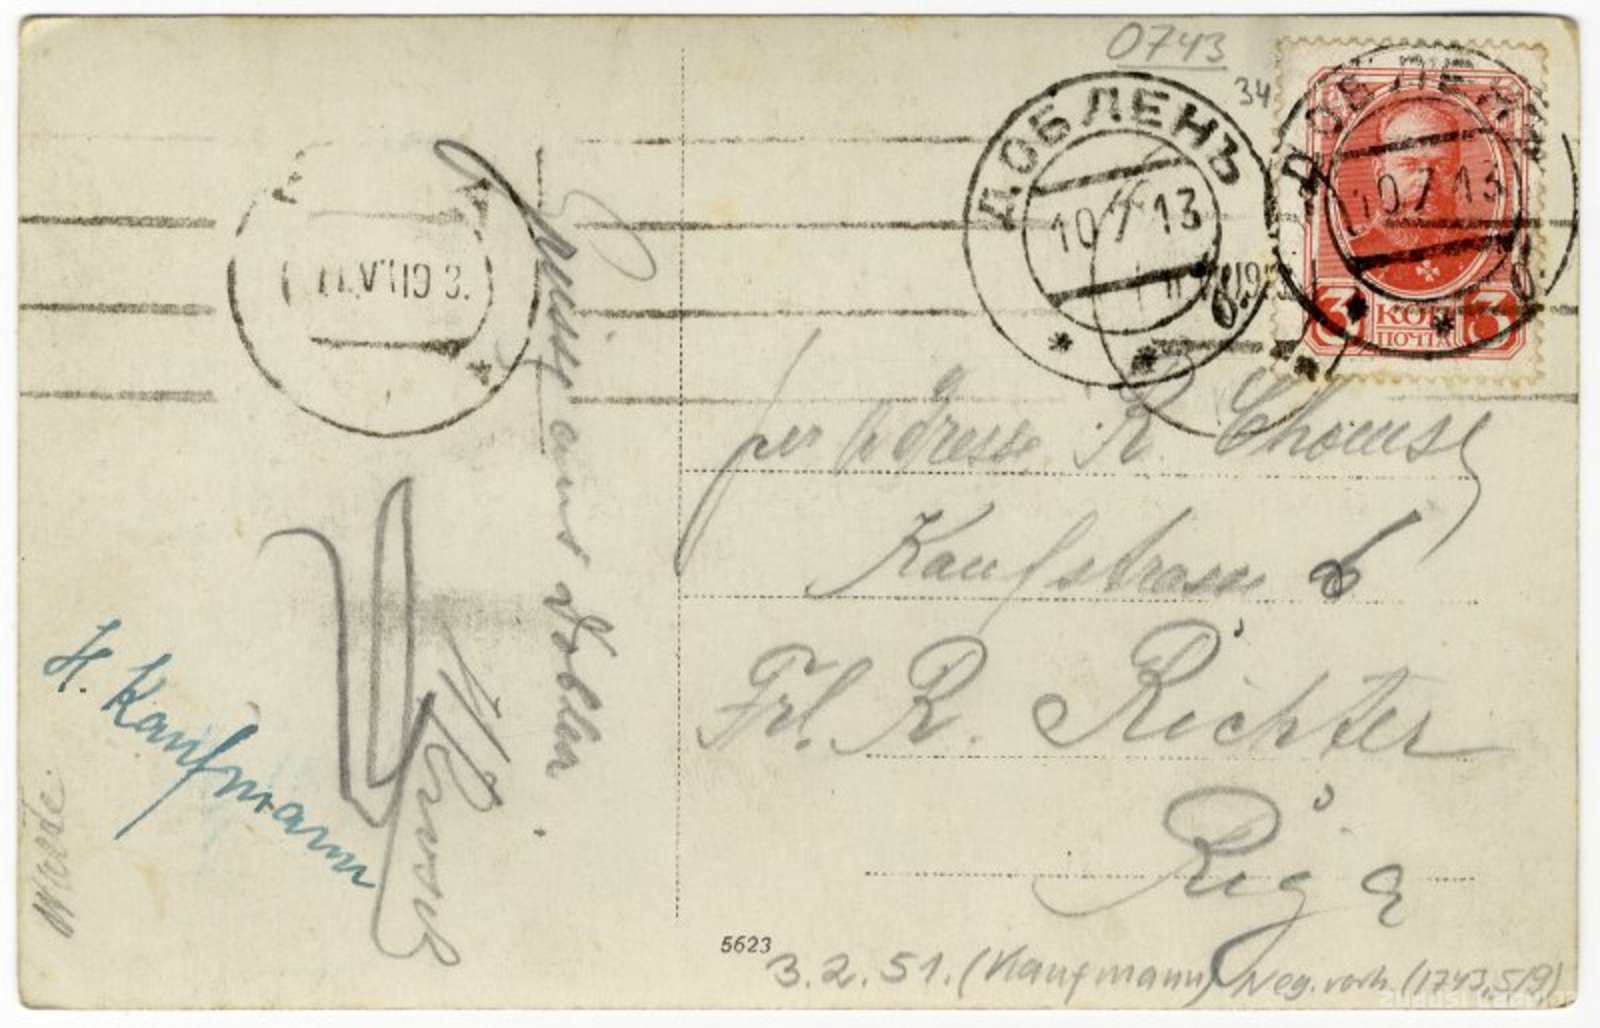 0743
34
ДОБЛЕНЪ
10 7 13
б.
ДОБЛЕНЪ
10 7 13
б.
3 КОП 3
ПОЧТА
Grüße aus Doblen
H. Kaufmann
per Adresse R.
Kaufstrasse 6
Frl. R. Richter
Riga
5623
3.2.51. (Kaufmann) Neg. vorh. (1743,5/9)
zudusi Latvija